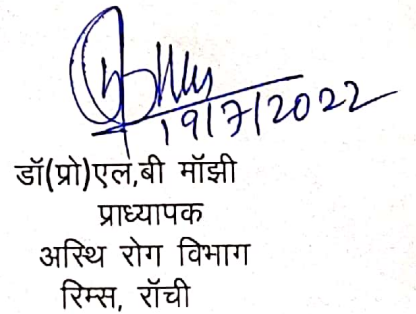 19/7/2022
डॉ(प्रो)एल,बी मॉझी
प्राध्यापक
अस्थि रोग विभाग
रिम्स, रॉची